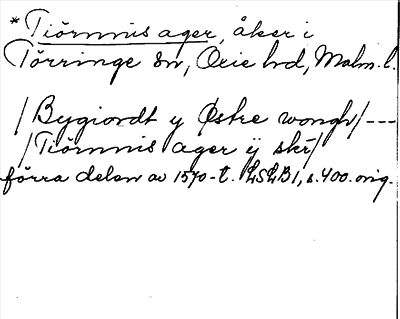 *Tiörnnis ager, åker i
Törringe sn, Oxie hd, Malm. l.
/Bygiordt y Østre wongh/---
/Tiörnnis ager ÿ skr/
förra delen av 1570-t. LSLB1, s. 400. orig.